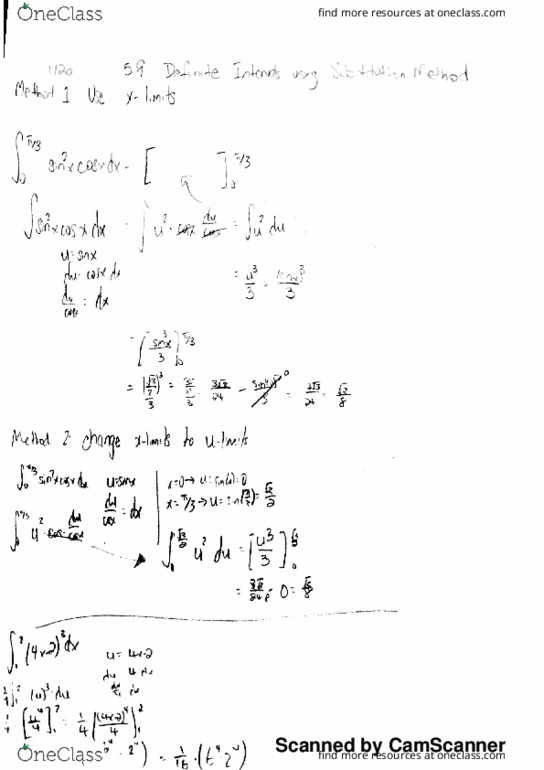 OneClass
find more resources at oneclass.com
1120 5.9 Definite Intervals using Substitution Method
Method 1 Use x-limits
∫₀^π/3 sin²x cosx dx = [ ]₀^π/3
∫sin²x cosx dx = ∫u² · cosx du/cosx = ∫u² du
u = sinx
du = cosx dx
du/cosx = dx
= u³/3 = (sinx)³/3
= [sin³x/3]₀^π/3
= 3√3/24 = √3/8
Method 2: change x-limits to u-limits
∫₀^π/3 sin²x cosx dx u = sinx
du/cosx = dx
x=0 → u = sin(0) = 0
x = π/3 → u = sin(π/3) = √3/2
∫₀^√3/2 u² du = [u³/3]₀^√3/2
= 3√3/24 - 0 = √3/8
∫₁² (4x-2)³ dx
u = 4x-2
du 4 dx
du/4 dx
1/4 ∫₁² (u)³ du
1/4 [u⁴/4]₁² = 1/4 [(4x-2)⁴/4]₁²
= 1/16 · (6⁴ - 2⁴)
OneClass
Scanned by CamScanner
find more resources at oneclass.com